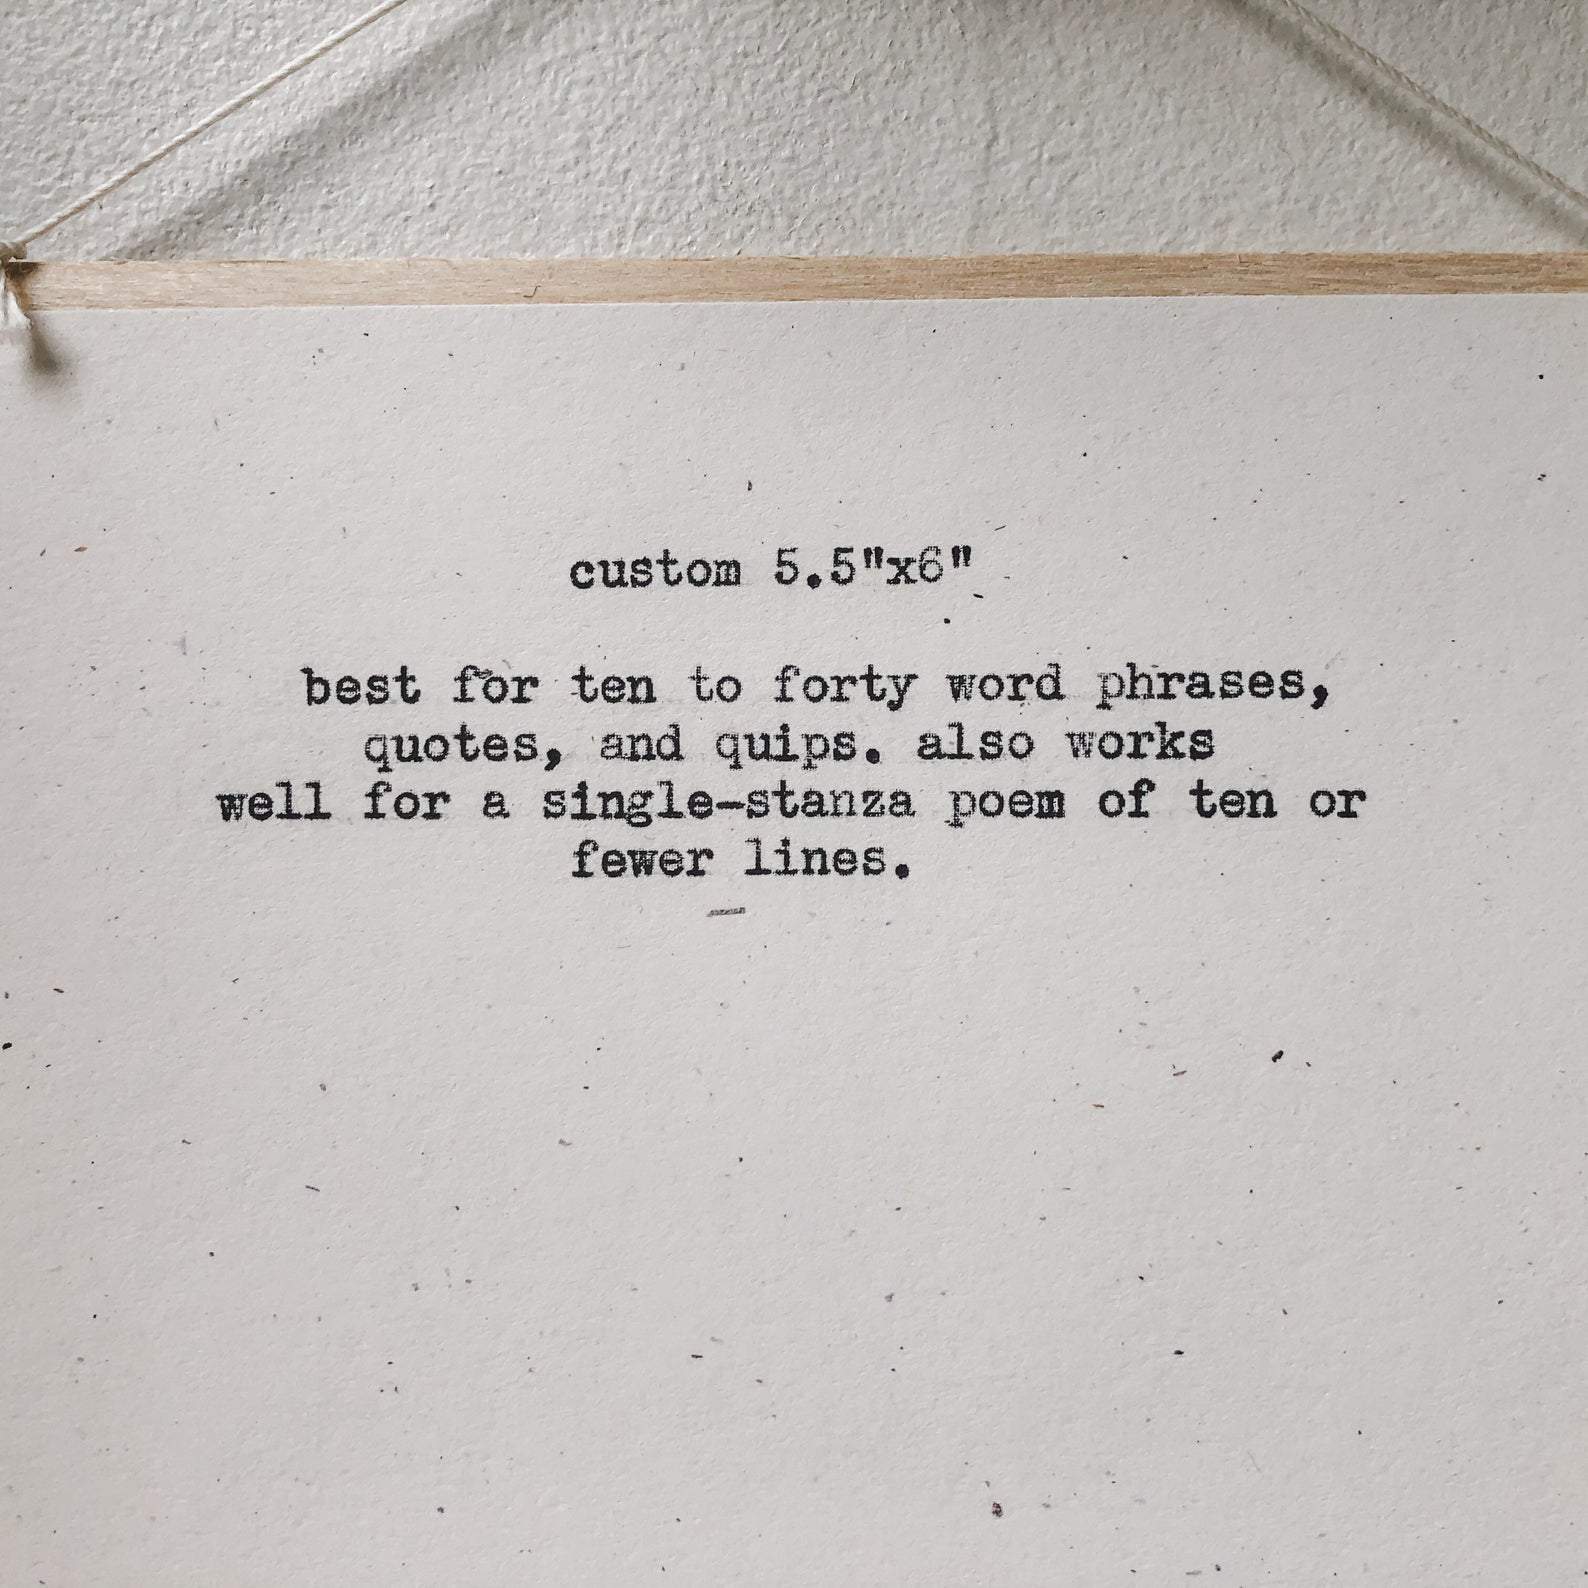 custom 5.5"x6"
best for ten to forty word phrases,
quotes, and quips. also works
well for a single-stanza poem of ten or
fewer lines.
—